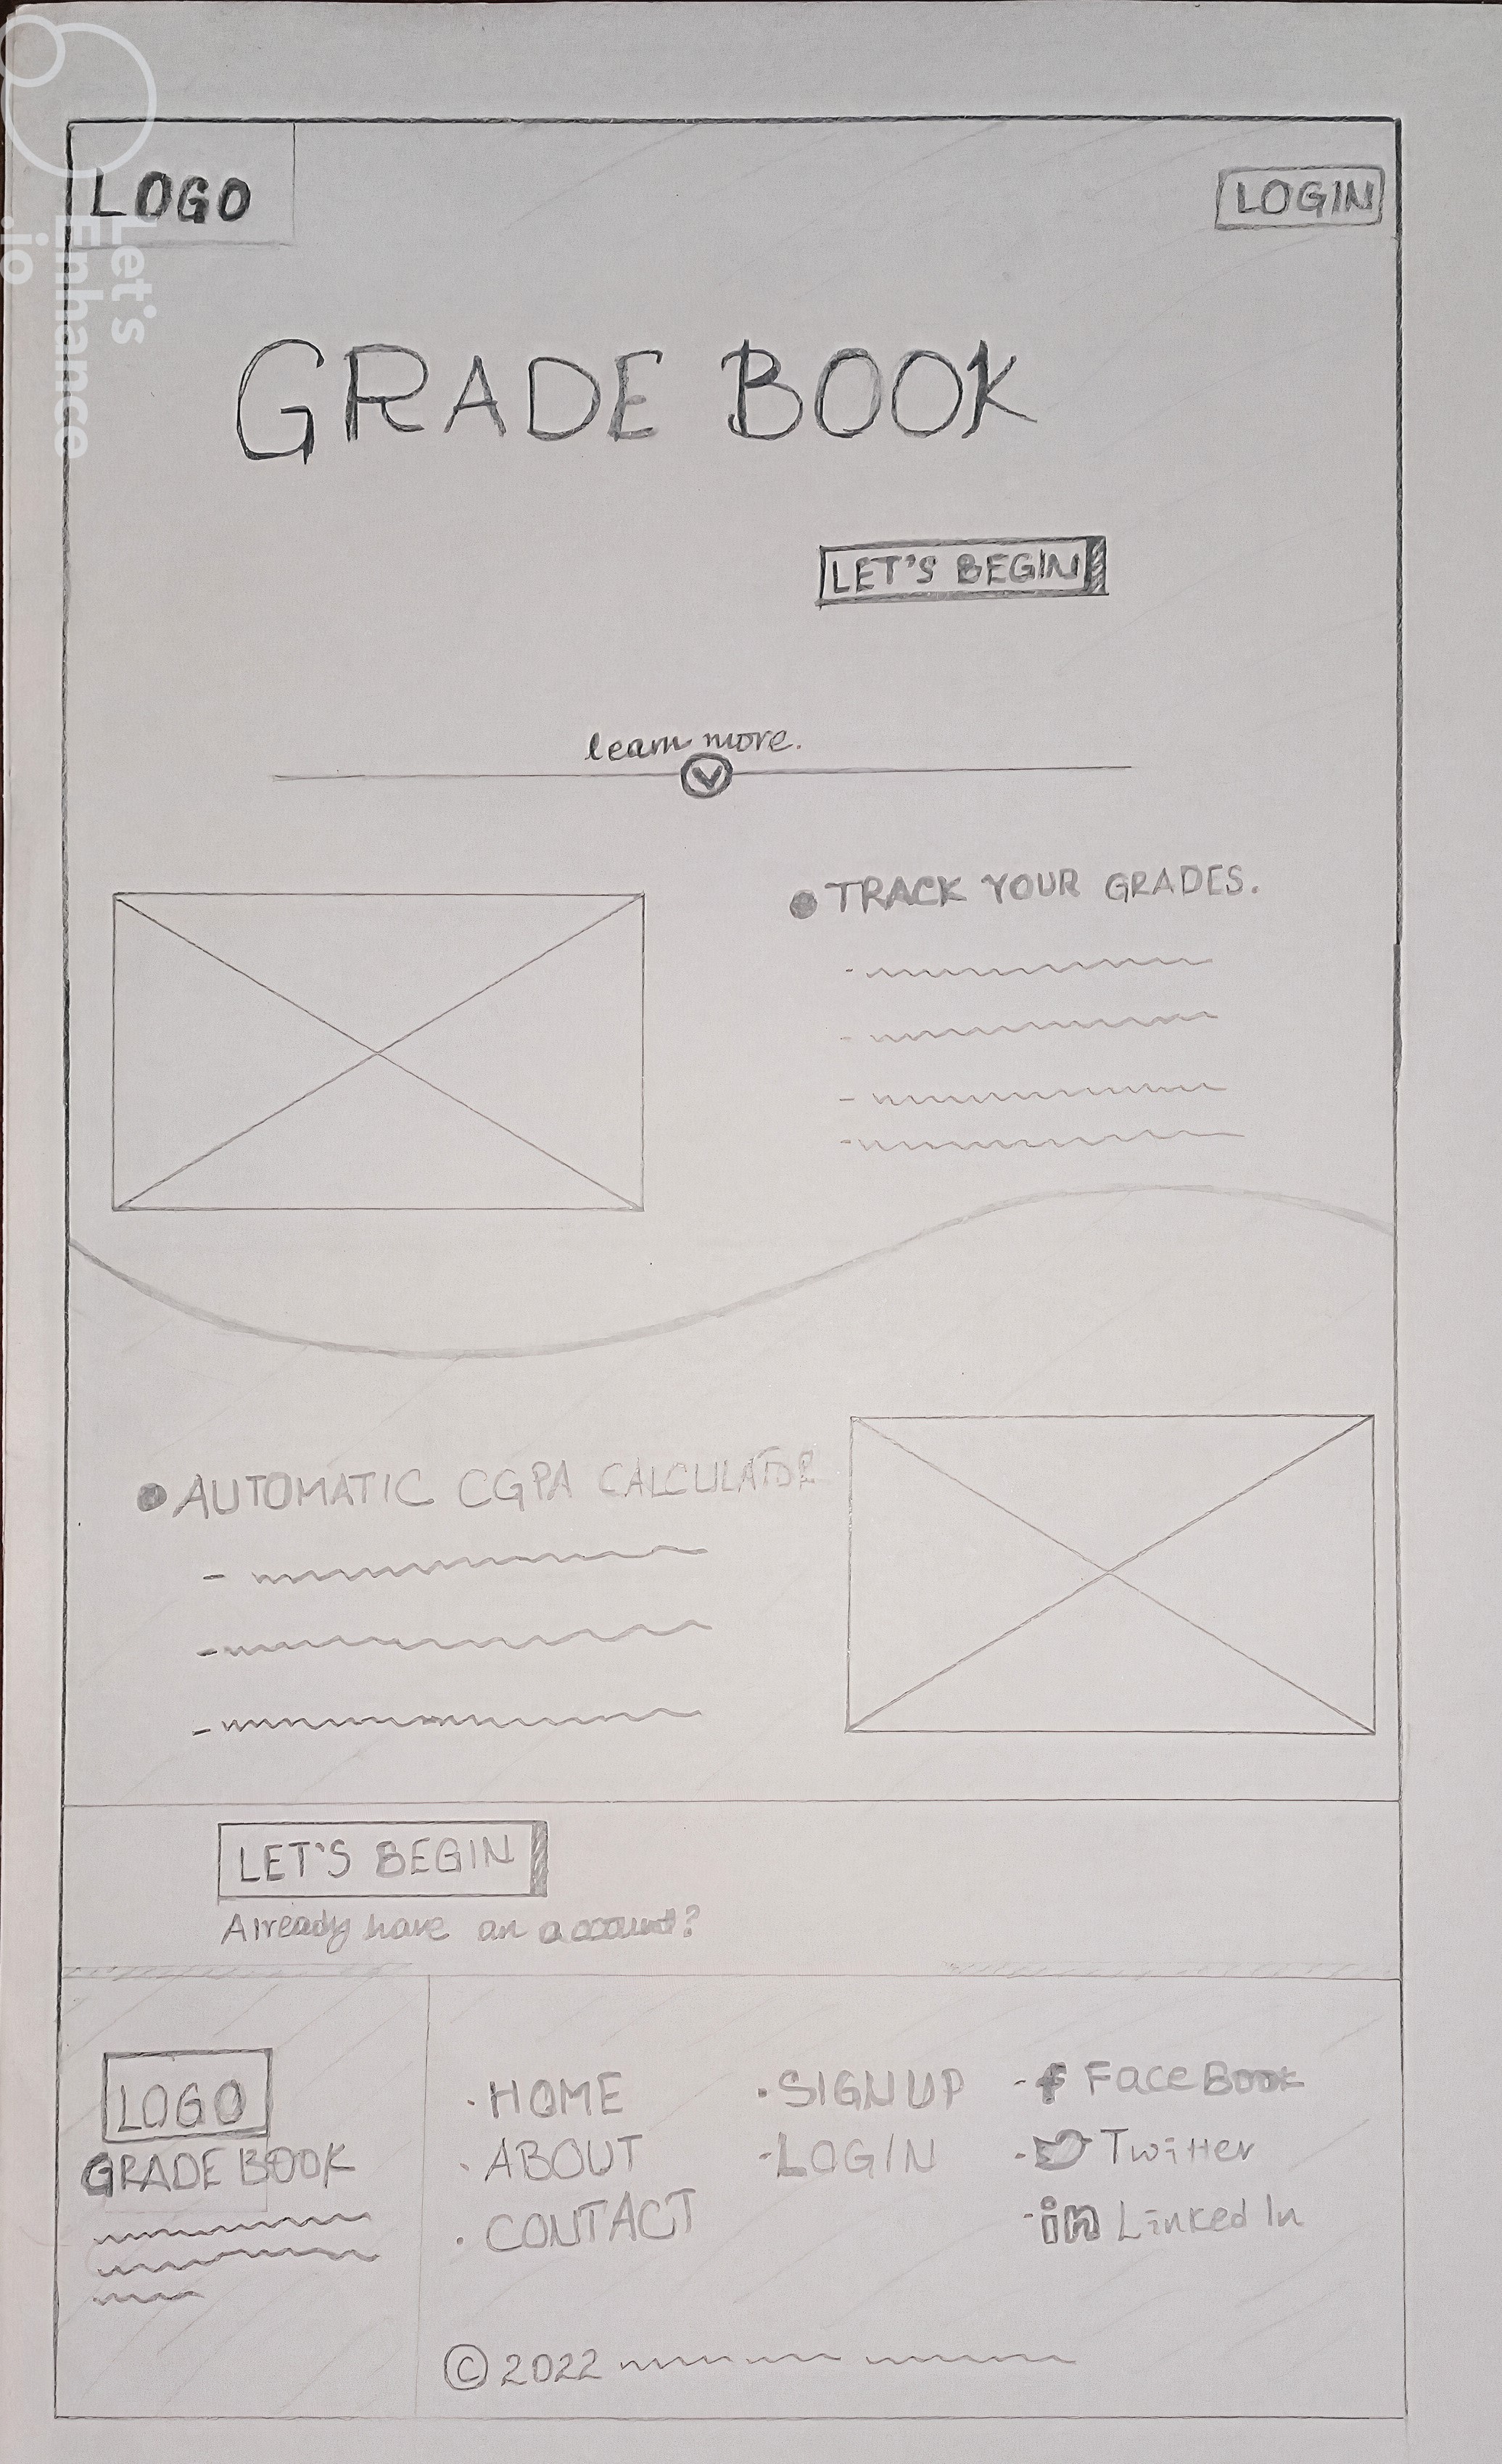 Let's
Enhance
.io
LOGO
LOGIN
GRADE BOOK
LET'S BEGIN
learn more.
TRACK YOUR GRADES.
AUTOMATIC CGPA CALCULATOR
LET'S BEGIN
Already have an account?
LOGO
GRADE BOOK
HOME
ABOUT
CONTACT
SIGNUP
LOGIN
f FaceBook
Twitter
in Linked In
© 2022